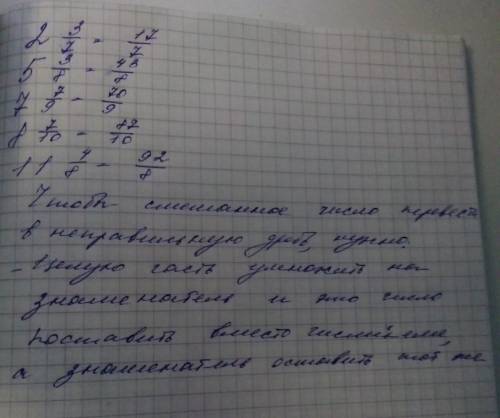 2 3/7 = 17/7
5 3/8 = 43/8
7 7/9 = 70/9
8 7/10 = 87/10
11 4/8 = 92/8
Чтобы смешанное число перевести
в неправильную дробь, нужно.
- Целую часть умножить на
знаменатель и это число
поставить вместо числителя,
а знаменатель оставить тот же